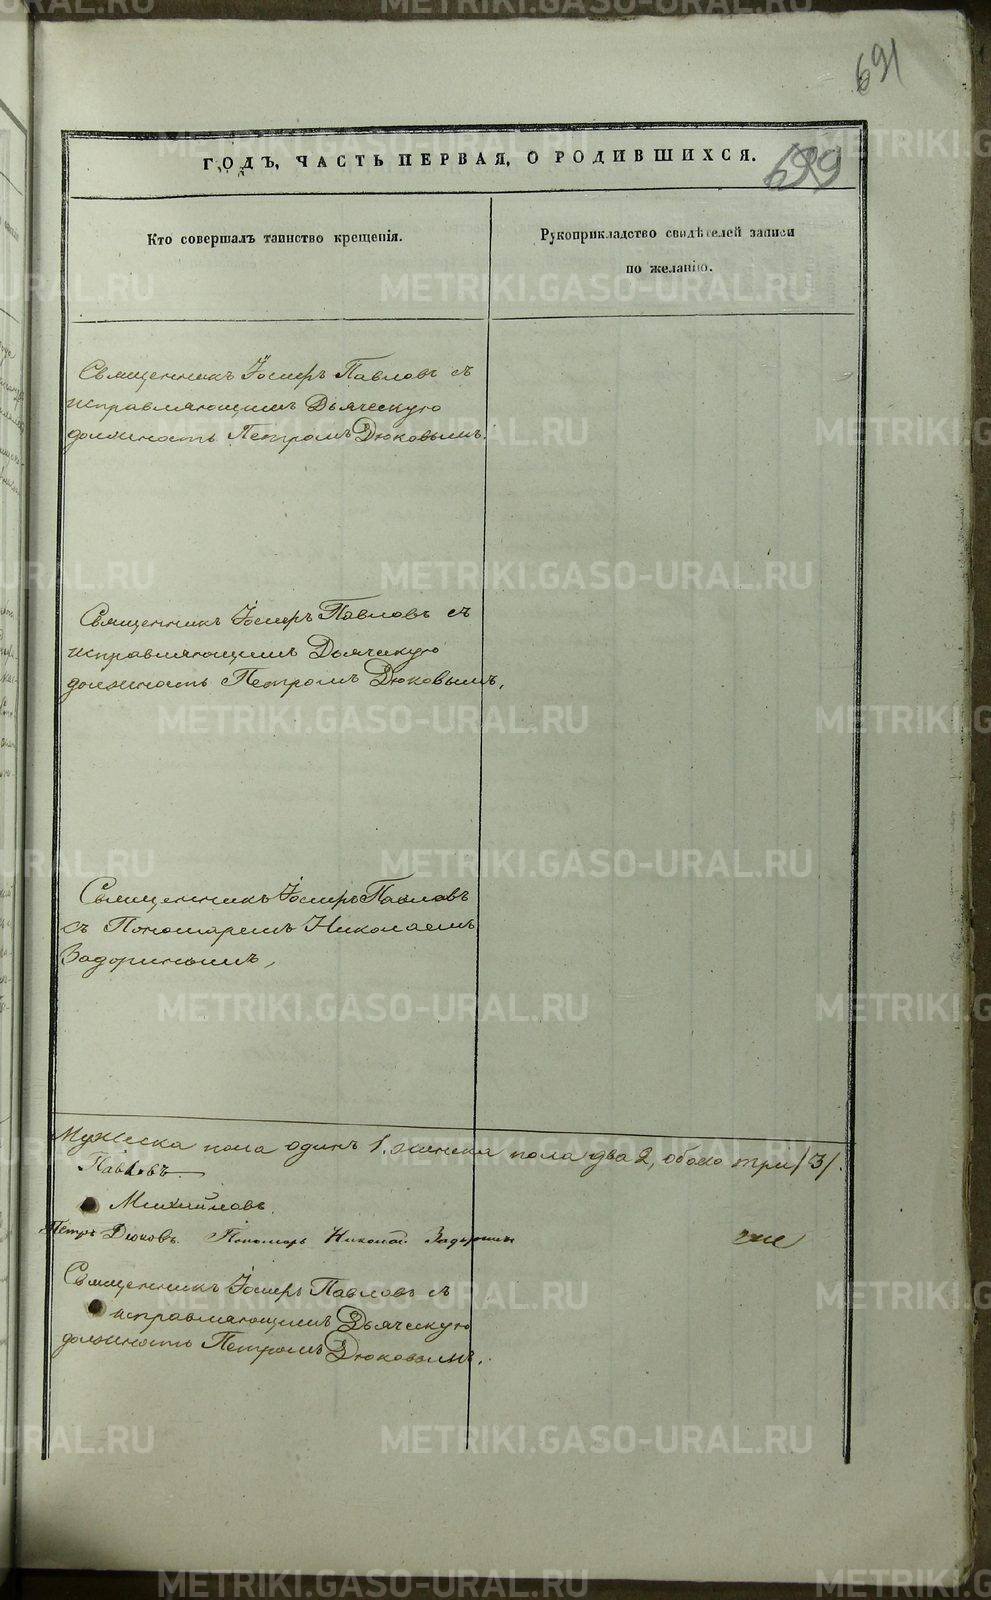 691
ГОДЪ, ЧАСТЬ ПЕРВАЯ, О РОДИВШИХСЯ.
699
Кто совершалъ таинство крещенія.
Рукоприкладство свидѣтелей записи
по желанію.
Священникъ Іосифъ Павловъ съ
исправляющимъ Дьяческую
должность Петромъ Дюковымъ.
Священникъ Іосифъ Павловъ съ
исправляющимъ Дьяческую
должность Петромъ Дюковымъ,
Священникъ Іосифъ Павловъ
съ Пономаремъ Николаемъ
Задоринымъ,
Мужеска пола одинъ 1. женска пола два 2, обоего три /3/.
Павловъ
Михайловъ
Петръ Дюковъ. Пономарь Николай Задоринъ
Священникъ Іосифъ Павловъ съ
исправляющимъ Дьяческую
должность Петромъ Дюковымъ.
METRIKI.GASO-URAL.RU